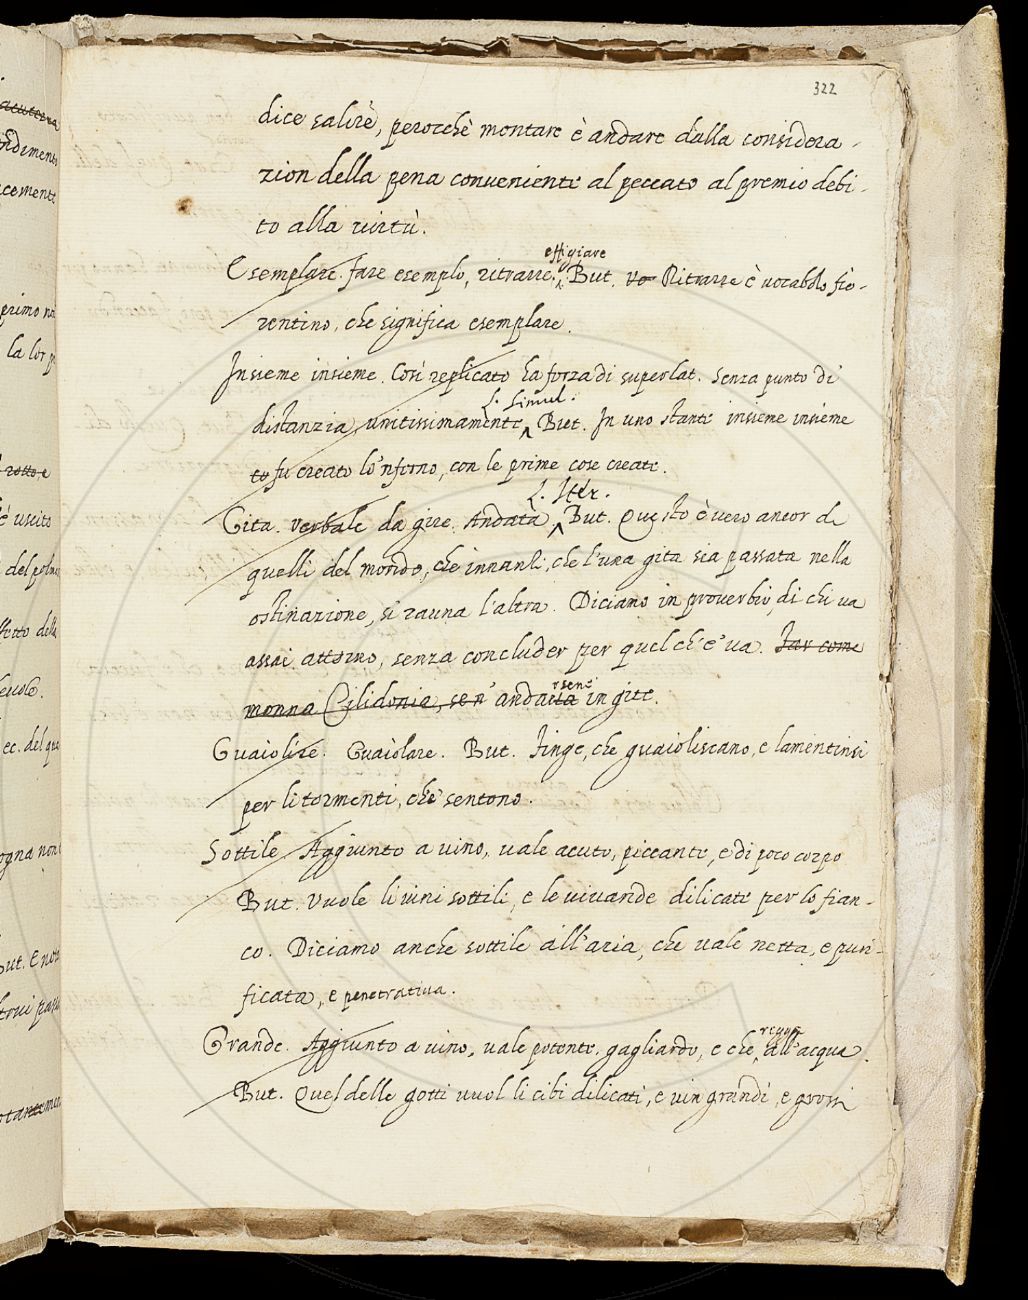 322
dice salirè, perocchè montare è andare dalla considera-
zion della pena conveniente al peccato al premio debi-
to alla virtù.
effigiare
Esemplare. fare esemplo, ritrarre. But. Vo Ritrarre è vocabolo fio-
rentino, che significa esemplare.
Insieme insieme. Così replicato ha forza di superlat. Senza punto di
L. Simul.
distanzia, unitissimamente, But. In uno stante insieme insieme
to fu creato lo 'nferno, con le prime cose create.
L. Iter.
Gita. verbale da gire. Andata, But. Questo è vero ancor di
quelli del mondo, che innanzi, che l'una gita sia passata nella
ostinazione, si rauna l'altra. Diciamo in proverbio, di chi va
assai attorno, senza concluder per quel ch'e' va. Far come
monna Cilidonia, se n' andarsene in gite.
Guaiolire. Guaiolare. But. Finge, che guaioliscano, e lamentinsi
per li tormenti, che sentono.
Sottile. Aggiunto a vino, vale acuto, piccante, e di poco corpo
But. Vuole li vini sottili, e le vivande dilicate per lo fian-
co. Diciamo anche sottile all'aria, che vale netta, e puri-
ficata, e penetrativa.
regge
Grande. Aggiunto a vino, vale potente, gagliardo, e che all'acqua.
But. Quel delle gotti vuol li cibi dilicati, e vin grandi, e grossi